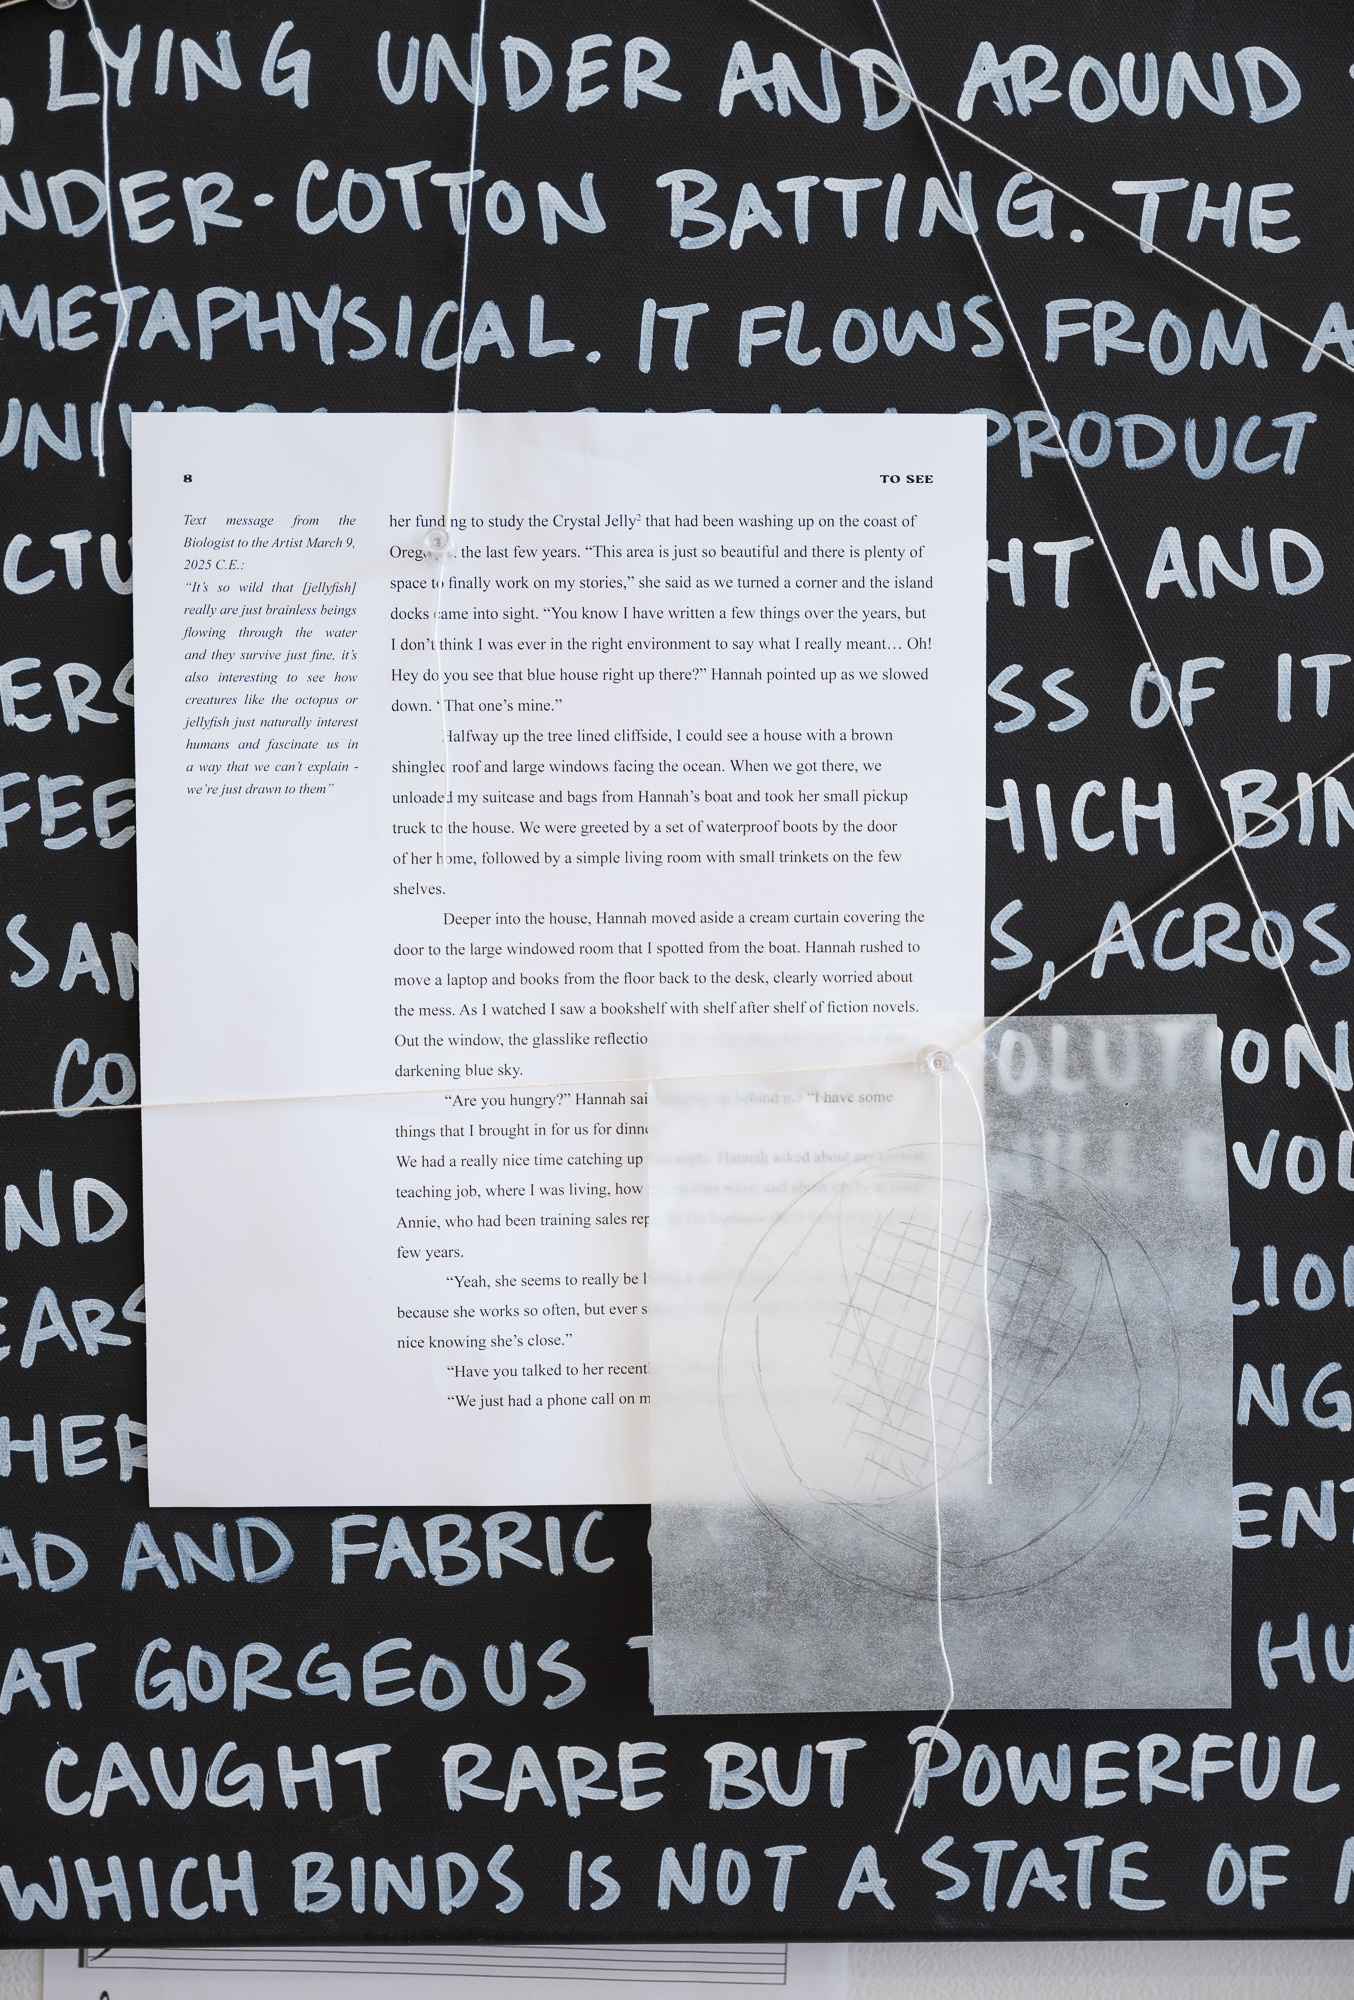 LYING UNDER AND AROUND
NDER-COTTON BATTING. THE
METAPHYSICAL. IT FLOWS FROM A
PRODUCT
HT AND
SS OF IT
HICH BIN
S, ACROS
OLUTION
CO
ND
VOL
EARS
NG
HER
ENT
AD AND FABRIC
AT GORGEOUS
HU
CAUGHT RARE BUT POWERFUL
WHICH BINDS IS NOT A STATE OF
8
TO SEE
Text message from the
Biologist to the Artist March 9,
2025 C.E.:
“It’s so wild that [jellyfish]
really are just brainless beings
flowing through the water
and they survive just fine, it’s
also interesting to see how
creatures like the octopus or
jellyfish just naturally interest
humans and fascinate us in
a way that we can’t explain -
we’re just drawn to them”
her funding to study the Crystal Jelly² that had been washing up on the coast of
the last few years. “This area is just so beautiful and there is plenty of
space to finally work on my stories,” she said as we turned a corner and the island
docks came into sight. “You know I have written a few things over the years, but
I don’t think I was ever in the right environment to say what I really meant… Oh!
Hey do you see that blue house right up there?” Hannah pointed up as we slowed
down. “That one’s mine.”
Halfway up the tree lined cliffside, I could see a house with a brown
shingled roof and large windows facing the ocean. When we got there, we
unloaded my suitcase and bags from Hannah’s boat and took her small pickup
truck to the house. We were greeted by a set of waterproof boots by the door
of her home, followed by a simple living room with small trinkets on the few
shelves.
Deeper into the house, Hannah moved aside a cream curtain covering the
door to the large windowed room that I spotted from the boat. Hannah rushed to
move a laptop and books from the floor back to the desk, clearly worried about
the mess. As I watched I saw a bookshelf with shelf after shelf of fiction novels.
Out the window, the glasslike reflectio
darkening blue sky.
“Are you hungry?” Hannah sai up behind me “I have some
things that I brought in for us for dinn
We had a really nice time catching up Hannah asked about my
teaching job, where I was living, how
Annie, who had been training sales rep
few years.
“Yeah, she seems to really be
because she works so often, but ever s
nice knowing she’s close.”
“Have you talked to her recent
“We just had a phone call on m